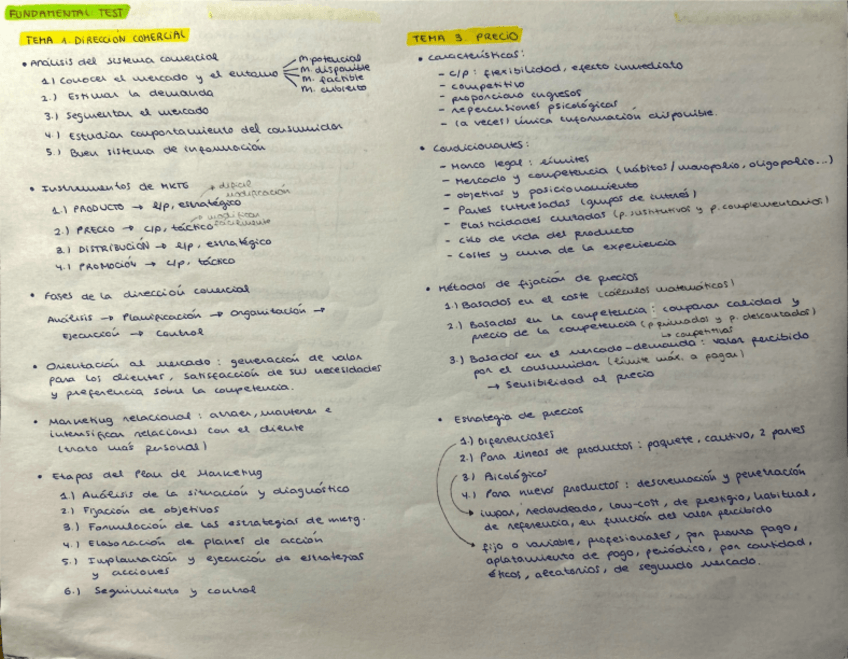 FUNDAMENTAL TEST
TEMA 1. DIRECCIÓN COMERCIAL
• Análisis del sistema comercial
1.) Conocer el mercado y el entorno
M. potencial
M. disponible
M. factible
M. cubierto
2.) Estimar la demanda
3.) Segmentar el mercado
4.) Estudiar comportamiento del consumidor
5.) Buen sistema de información
• Instrumentos de MKTG
→ difícil
modificación
1.) PRODUCTO → l/p, estratégico
→ modificar
fácilmente
2.) PRECIO → c/p, táctico
3.) DISTRIBUCIÓN → l/p, estratégico
4.) PROMOCIÓN → c/p, táctico
• Fases de la dirección comercial
Análisis → Planificación → Organización →
Ejecución → Control
• Orientación al mercado: generación de valor
para los clientes, satisfacción de sus necesidades
y preferencia sobre la competencia.
• Marketing relacional: atraer, mantener e
intensificar relaciones con el cliente
(trato más personal)
• Etapas del Plan de Marketing
1.) Análisis de la situación y diagnóstico
2.) Fijación de objetivos
3.) Formulación de las estrategias de mktg.
4.) Elaboración de planes de acción
5.) Implantación y ejecución de estrategias
y acciones
6.) Seguimiento y control
TEMA 9. PRECIO
• Características:
- c/p: flexibilidad, efecto inmediato
- competitivo
- proporciona ingresos
- repercusiones psicológicas
- (a veces) única información disponible.
• Condicionantes:
- Marco legal: límites
- Mercado y competencia (hábitos/monopolio, oligopolio...)
- objetivos y posicionamiento
- Partes interesadas (grupos de interés)
- Elasticidades cruzadas (p. sustitutivos y p. complementarios)
- ciclo de vida del producto
- costes y curva de la experiencia
• Métodos de fijación de precios
1.) Basados en el coste (cálculos matemáticos)
2.) Basados en la competencia: comparar calidad y
precio de la competencia (p. primados y p. descontados)
→ competitivas
3.) Basados en el mercado-demanda: valor percibido
por el consumidor (límite máx. a pagar)
→ Sensibilidad al precio
• Estrategia de precios
1.) Diferenciales
2.) Para líneas de productos: paquete, cautivo, 2 partes
3.) Psicológicos
4.) Para nuevos productos: descremación y penetración
impar, redondeado, low-cost, de prestigio, habitual,
de referencia, en función del valor percibido
fijo o variable, profesionales, por pronto pago,
aplazamiento de pago, periódico, por cantidad,
éticos, aleatorios, de segundo mercado.